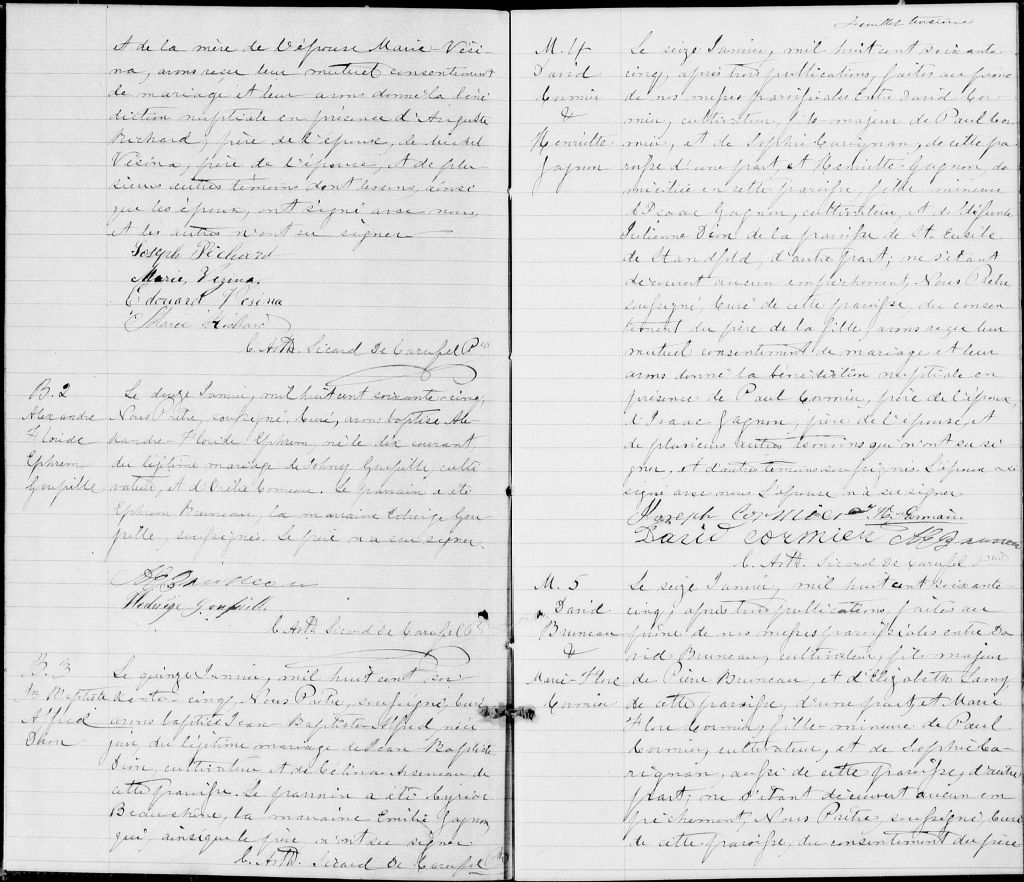 et de la mère de l'épouse Marie Vési-
na, avons reçu leur mutuel consentement
de mariage et leur avons donné la béné
diction nuptiale en présence d'Auguste
Richard, père de l'époux, de Michel
Vésina, père de l'épouse, et de plu
sieurs autres témoins dont
que les époux, ont signé avec nous,
et les autres n'ont su signer
Joseph Richard
Marie Vezina
Edouard Vesina
Marie Richard
C. Arth. Sicard De Carufel Ptre
B. 2
Alexandre
Floride
Ephrem
Goupille
Le douze Janvier, mil huit cent soixante-cinq,
Nous Prêtre, soussigné, Curé, avons baptisé Ale-
xandre Floride Ephrem, né le dix courant,
du légitime mariage de Johny Goupille, culti-
vateur, et d'Orélie Comeau. Le parrain a été
Ephrem Bruneau, la marraine Edwige Gou-
pille, soussignés. Le père n'a su signer.
Hedwige Goupille
C. Arth. Sicard de Carufel
B. 3
Jn Baptiste
Alfred
Dion
Le quinze Janvier, mil huit cent soi
xante-cinq, Nous Prêtre, soussigné, Curé
avons baptisé Jean Baptiste Alfred, né ce
jour, du légitime mariage de Jean Baptiste
Dion, cultivateur et de Célina Arseneau de
cette paroisse. Le parrain a été Cyriac
la marraine Emilie Gagnon
qui, ainsi que le père n'ont su signer
C. Arth. Sicard de Carufel
Feuillet troisième
M. 4
David
Cormier
&
Henriette
Gagnon
Le seize Janvier, mil huit cent soixante-
cinq, après trois publications, faites au prône
de nos messes paroissiales entre David Cor-
mier, cultivateur, fils majeur de Paul Cor
mier, et de Sophie Carignan, de cette pa-
roisse d'une part, et Henriette Gagnon, do
miciliée en cette paroisse, fille mineure
d'Isaac Gagnon, cultivateur, et de défunte
Julienne Dion de la paroisse de St. Eusèbe
de Stanfold, d'autre part; ne s'étant
découvert aucun empêchement, Nous Prêtre,
soussigné, Curé de cette paroisse, du consen
tement du père de la fille, avons reçu leur
mutuel consentement de mariage et leur
avons donné la bénédiction nuptiale en
présence de Paul Cormier, père de l'époux,
d'Isaac Gagnon, père de l'épouse, et
de plusieurs autres témoins qui n'ont su si-
gner, et d'autres témoins soussignés. L'époux a
signé avec nous L'épouse n'a su signer.
Joseph Cormier
David Cormier
C. Arth. Sicard de Carufel Ptre
M. 5
David
Bruneau
&
Marie-Flore
Cormier
Le seize Janvier, mil huit cent soixante-
cinq, après trois publications, faites au
prône de nos messes paroissiales entre Da
vid Bruneau, cultivateur, fils majeur
de Pierre Bruneau, et d'Elizabeth Lamy,
de cette paroisse, d'une part, et Marie
Flore Cormier, fille mineure de Paul
Cormier, cultivateur, et de Sophie Ca-
rignan, aussi de cette paroisse, d'autre
part; ne s'étant découvert aucun em
pêchement, Nous Prêtre, soussigné, Curé
de cette paroisse, du consentement du père